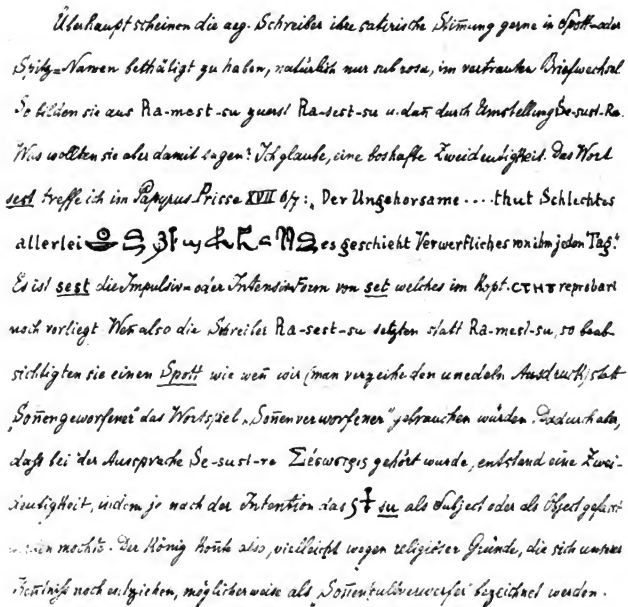 Überhaupt scheinen die aeg. Schreiber ihre satirische Stimung gerne in Spott- oder
Spitz-Namen bethätigt zu haben, natürlich nur sub rosa, im vertrauten Briefwechsel
So bilden sie aus Ra-mest-su zuerst Ra-sest-su u. dañ durch Umstellung Se-sust-Ra.
Was wollten sie aber damit sagen? Ich glaube, eine boshafte Zweideutigkeit. Das Wort
sest treffe ich im Papyrus Prisse XVII 6/7: „Der Ungehorsame .... thut Schlechtes
allerlei es geschieht Verwerfliches von ihm jeden Tag."
Es ist sest die Impulsiv- oder Intensiv-Form von set welches im Kopt. ⲥⲧⲏⲧ reprobari
noch vorliegt Weñ also die Schreiber Ra-sest-su setzten statt Ra-mest-su, so beab-
sichtigten sie einen Spott wie weñ wir (man verzeihe den unedeln Ausdruck) statt
„Soñengeworfener" das Wortspiel „Soñenverworfener" gebrauchen würden. Dadurch aber,
daß bei der Aussprache Se-sust-re Σέσωστρις gehört wurde, entstand eine Zwei-
deutigkeit, indem je nach der Intention das su als Subject oder als Object gefasst
werden mochte. Der König koñte also, vielleicht wegen religiöser Gründe, die sich unserer
Keñtniß noch entziehen, möglicherweise als „Soñenkultverwerfer" bezeichnet werden.